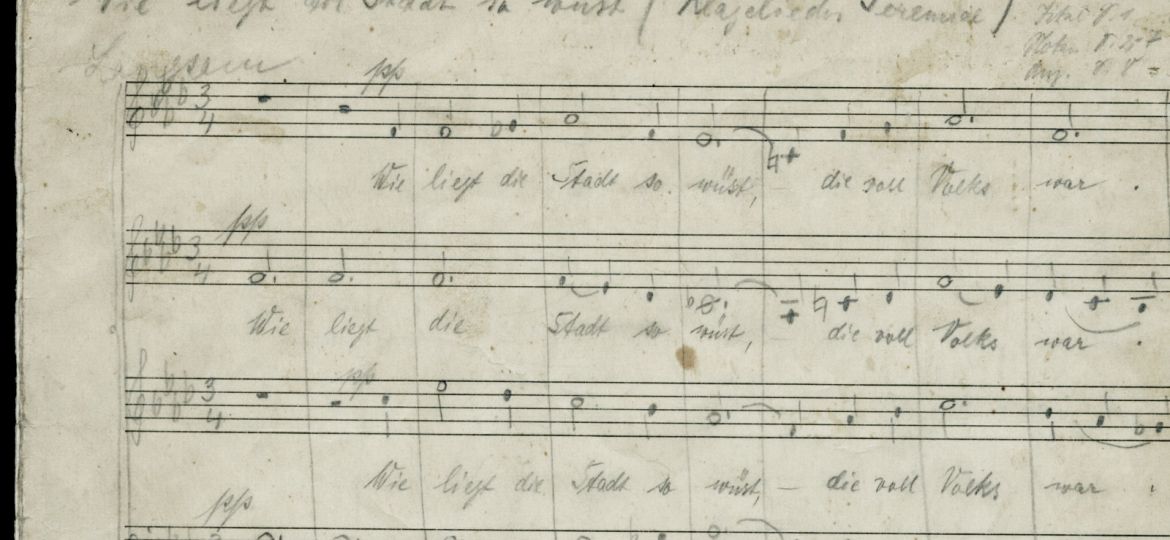 Wie liegt die Stadt so wüst (Klagelieder Jeremiae)
Langsam
pp
3
4
Wie liegt die Stadt so wüst, – die voll Volks war .
pp
3
4
Wie liegt die Stadt so wüst, – die voll Volks war .
pp
3
4
Wie liegt die Stadt so wüst, – die voll Volks war .
pp
3